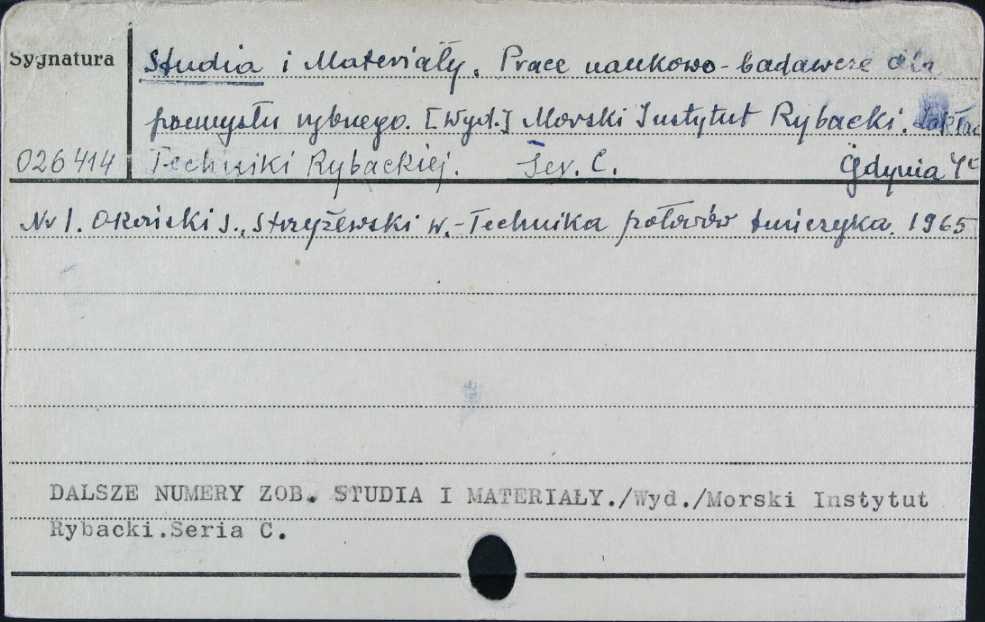 Sygnatura
Studia i Materiały. Prace naukowo-badawcze dla
przemysłu rybnego. [Wyd.] Morski Instytut Rybacki. Zakład
026414 Techniki Rybackiej. Ser. C. Gdynia 4°
Nr 1. Okoński S., Strzyżewski W.-Technika połowów tuńczyka. 1965
DALSZE NUMERY ZOB. STUDIA I MATERIAŁY./Wyd./Morski Instytut
Rybacki.Seria C.